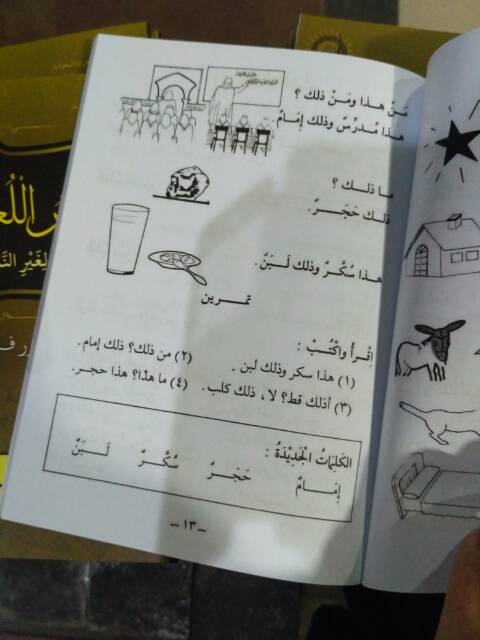 مَنْ هذا ومَنْ ذلك ؟
هذا مُدرِّسٌ وذلك إمَامٌ.
ما ذلـك ؟
ذلـك حَجَـرٌ.
هـذا سُكَّـرٌ وذلك لَـبَنٌ.
تمـــرين
اِقْرَأْ واكْتُبْ :
(١) هذا سكر وذلك لبن .
(٢) من ذلك؟ ذلك إمام .
(٣) أذلك قط؟ لا ، ذلك كلب .
(٤) ما هذا؟ هذا حجر.
الكَلِمَاتُ الْجَدِيْدَةُ :
إِمَـامٌ
حَجَـرٌ
سُكَّـرٌ
لَـبَنٌ
ــ ١٣ ــ